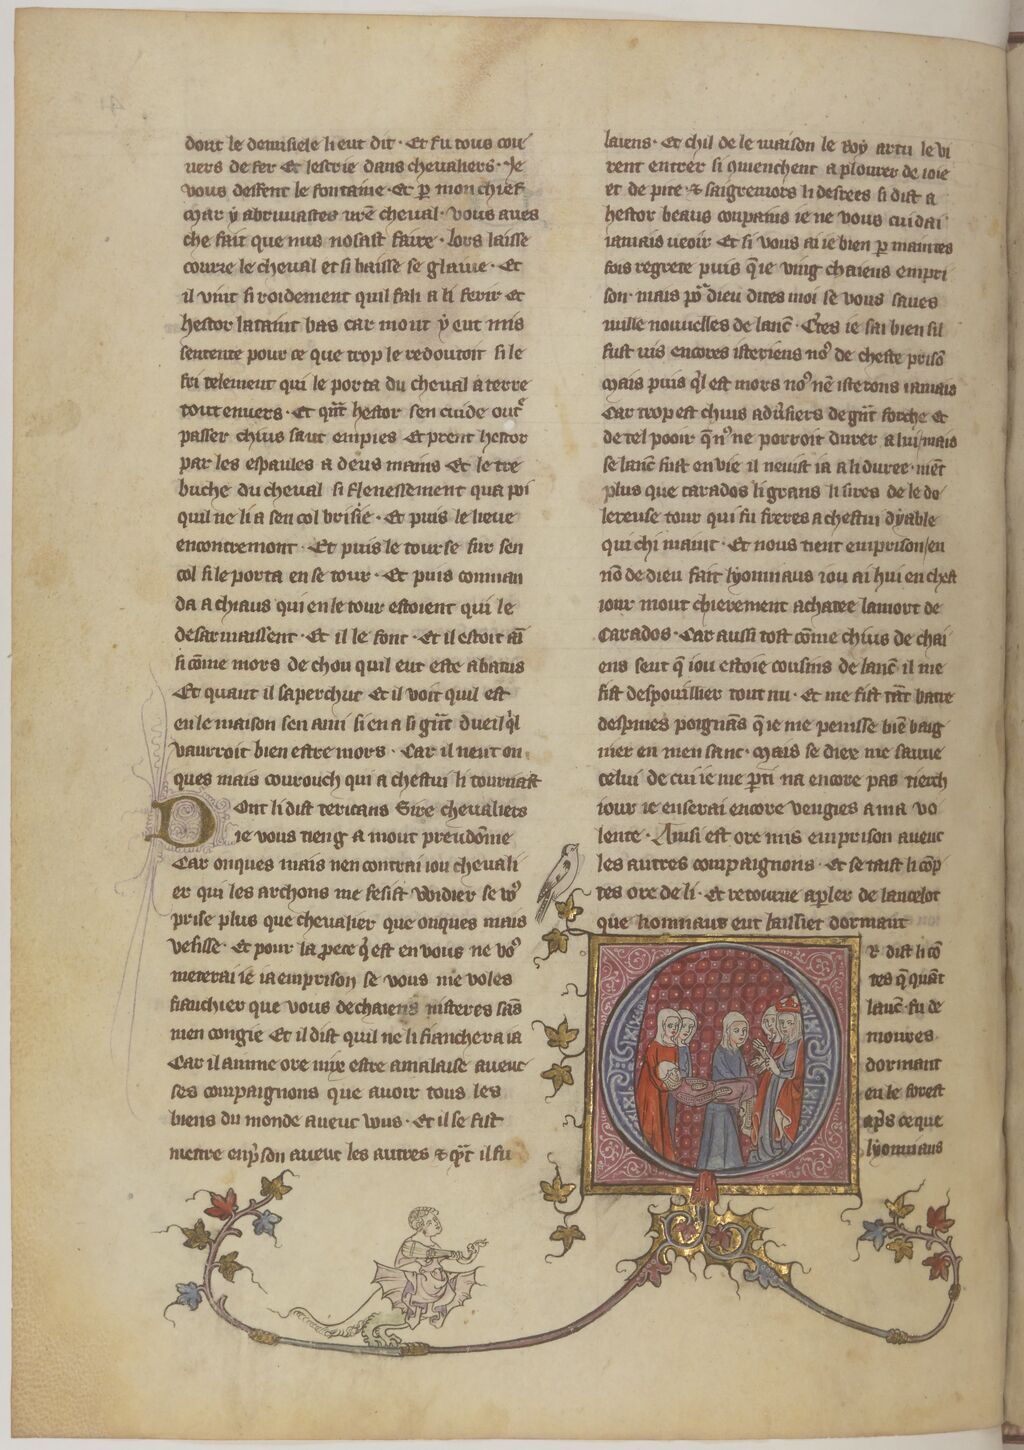 dont le demisiele li eut dit · Et fu tous cou
uers de fer Et lescrie dans cheualiers · Je
vous deffent le fontaine · Et p̲ mon chief
Mar y abruuastes ur̄e cheual · vous aues
che fait que nus nosast faire · lors laisse
courre le cheual et si baisse se glaiue · Et
il vint si roidement quil fali a li ferir Et
hestor lataint bas car mout y eut mis
sentente pour ce que trop le redoutoit si le
fri telement qui le porta du cheual a terre
tout enuers · Et qn̄t hestor sen cuide out
passer chius saut en pies Et prent hestor
par les espaules a deus mains Et le tre
buche du cheual si flenessement qua poi
quil ne li a sen col brisie · Et puis le lieue
encontremont · Et puis le tourse sur sen
col si le porta en se tour · Et puis conman
da a chiaus qui en le tour estoient qui le
desarmaissent · Et il le font · Et il estoit au
si cōme mors de chou quil eut este abatus
Et quant il saperchut Et il voit quil est
en le maison sen anui si en a si gn̄t dueil ql
vaurroit bien estre mors · Car il neut on
ques mais courouch qui a chestui li tournast
Dont li dist tericans Sire cheualiers
ie vous tieng a mout preudōme
Car onques mais nen contrai iou cheuali
er qui les archons me fesist vuidier se vo9
prise plus que cheualier que onques mais
veisse · Et pour la proece q̄ est en vous ne vo9
meterai ie ia en prison se vous me voles
fianchier que vous de chaiens nisteres sās
men congie Et il dist quil ne li fianchera ia
Car il aimme ore mix estre a malaise aueuc
ses compaignons que auoir tous les
biens du monde aueuc vous · Et il se fist
metre en p̲son aueuc les autres & qn̄t il fu
laiens · Et chil de le maison le Roy artu le vi
rent entrer si quienchent a plourer de ioie
et de pite & saigremors li desrees si dist a
hestor biaus conpains ie ne vous cuidai
iamais veoir Et si vous ai ie bien p̲ maintes
fois regrete puis q̄ ie ving chaiens en pri
son · mais por dieu dites moi se vous saues
nulle nouuelles de lanc̄ · Certes ie sai bien sil
fust vis encores isteriens no9 de cheste priso
Mais puis ql est mors no9 nē isterons iamais
Car trop est chius aduersiers de gn̄t forche Et
de tel pooir q̄ n9 ne porroit durer a lui / mais
se lanc̄ fust en vie il neuist ia a li duree · nient
plus que carados li grans li sires de le do
lereuse tour qui fu freres a chestui dyable
qui chi maint · Et nous tient en prison / en
nō de dieu fait lyonniaus iou ai hui en chest
iour mout chierement achatee la mort de
Carados · Car aussi tost cōme chius de chai
ens seut q̄ iou estoie cousins de lanc̄ il me
fist despouillier tout nu · Et me fist tāt batre
despines poignās q̄ ie me peuisse biē baig
nier en men sanc · Mais se diex me sauue
celui de cui ie me p̲ti na encore pas tierch
iour ie en serai encore vengies a ma vo
lente · Ainsi est ore mis en prison aueuc
les autres compaignons · Et se taist li cōp
tes ore de li · Et retourne a p̲ler de lancelot
que lionniaus eut laissiet dormant
Or dist li cō
tes q̄ quāt
lanc̄ · fu de
moures
dormant
en le forest
apres ce que
lyonniaus